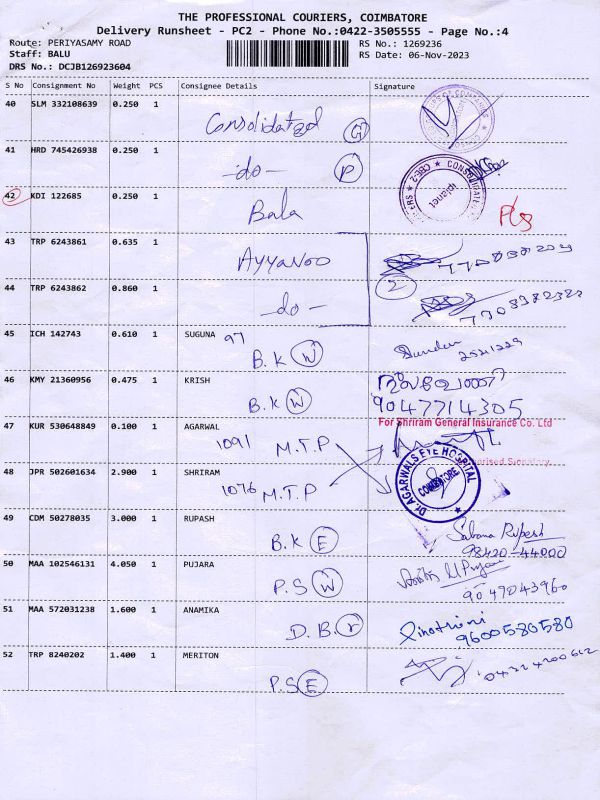 THE PROFESSIONAL COURIERS, COIMBATORE
Delivery Runsheet - PC2 - Phone No.:0422-3505555 - Page No.:4
Route: PERIYASAMY ROAD RS No.: 1269236
Staff: BALU RS Date: 06-Nov-2023
DRS No.: DCJB126923604
S No Consignment No Weight PCS Consignee Details Signature
40 SLM 332108639 0.250 1
Consolidated G
41 HRD 745426938 0.250 1
-do- P
42 KDI 122685 0.250 1
Bala
43 TRP 6243861 0.635 1
AYYANOO
44 TRP 6243862 0.860 1 2
-do-
45 ICH 142743 0.610 1 SUGUNA 97
B.K W
46 KMY 21360956 0.475 1 KRISH
B.K W 9047714305
47 KUR 530648849 0.100 1 AGARWAL For Shriram General Insurance Co. Ltd
1091 M.T.P
48 JPR 502601634 2.900 1 SHRIRAM DR.AGARWALS EYE HOSPITAL COIMBATORE
1076 M.T.P
49 CDM 50278035 3.000 1 RUPASH
B.K E Sabana Rupesh
98420-44000
50 MAA 102546131 4.050 1 PUJARA
P.S W 9047043960
51 MAA 572031238 1.600 1 ANAMIKA
D.B. r 9600580580
52 TRP 8240202 1.400 1 MERITON
P.S E